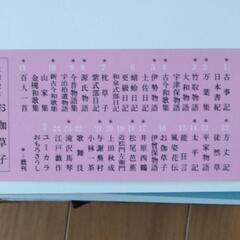 古事記
日本書紀
万葉集
竹取物語
大和物語
宇津保物語
古今和歌集
伊勢物語
土佐日記
更級日記
蜻蛉日記
和泉式部日記
紫式部日記
枕草子
源氏物語
今昔物語集
宇治拾遺物語
新古今和歌集
山家集
金槐和歌集
百人一首
方丈記
徒然草
平家物語
太平記
能 狂言
風姿花伝
お伽草子
井原西鶴
松尾芭蕉
近松門左衛門
上田秋成
与謝蕪村
小林一茶
歌舞伎
滝沢馬琴
江戸戯作
ユーカラ
おもろさうし
既刊
お伽草子